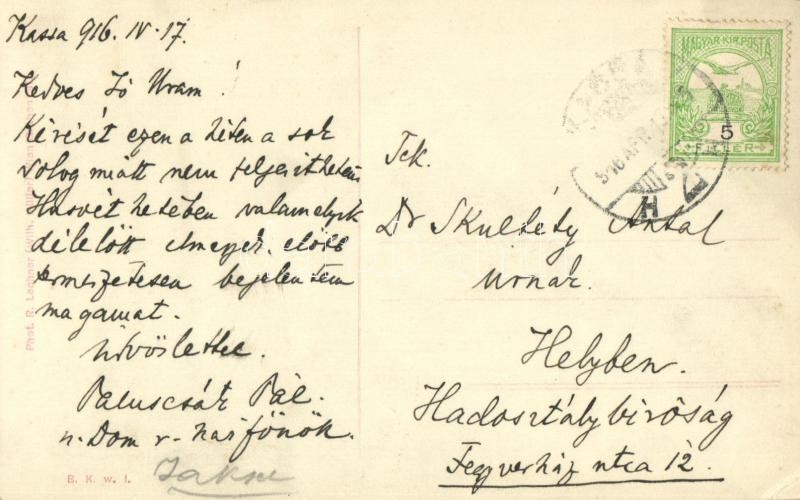 Kassa 916. IV. 17.
Kedves Jó Uram!
Kérését ezen a héten a sok
dolog miatt nem teljesithetem
Husvét hetében valamelyik
délelőtt elmegyek, előbb
természetesen bejelentem
magamat.
Üdvözlettel
Paluscsák Pál.
n. Dom r. házfőnök.
B. K. w. I.
MAGYAR KIR. POSTA
5
FILLÉR
916 APR
Tek.
Dr Skultéty Antal
urnak.
Helyben.
Hadosztálybiróság
Fegyverház utca 12.
Phot. R. Lechner